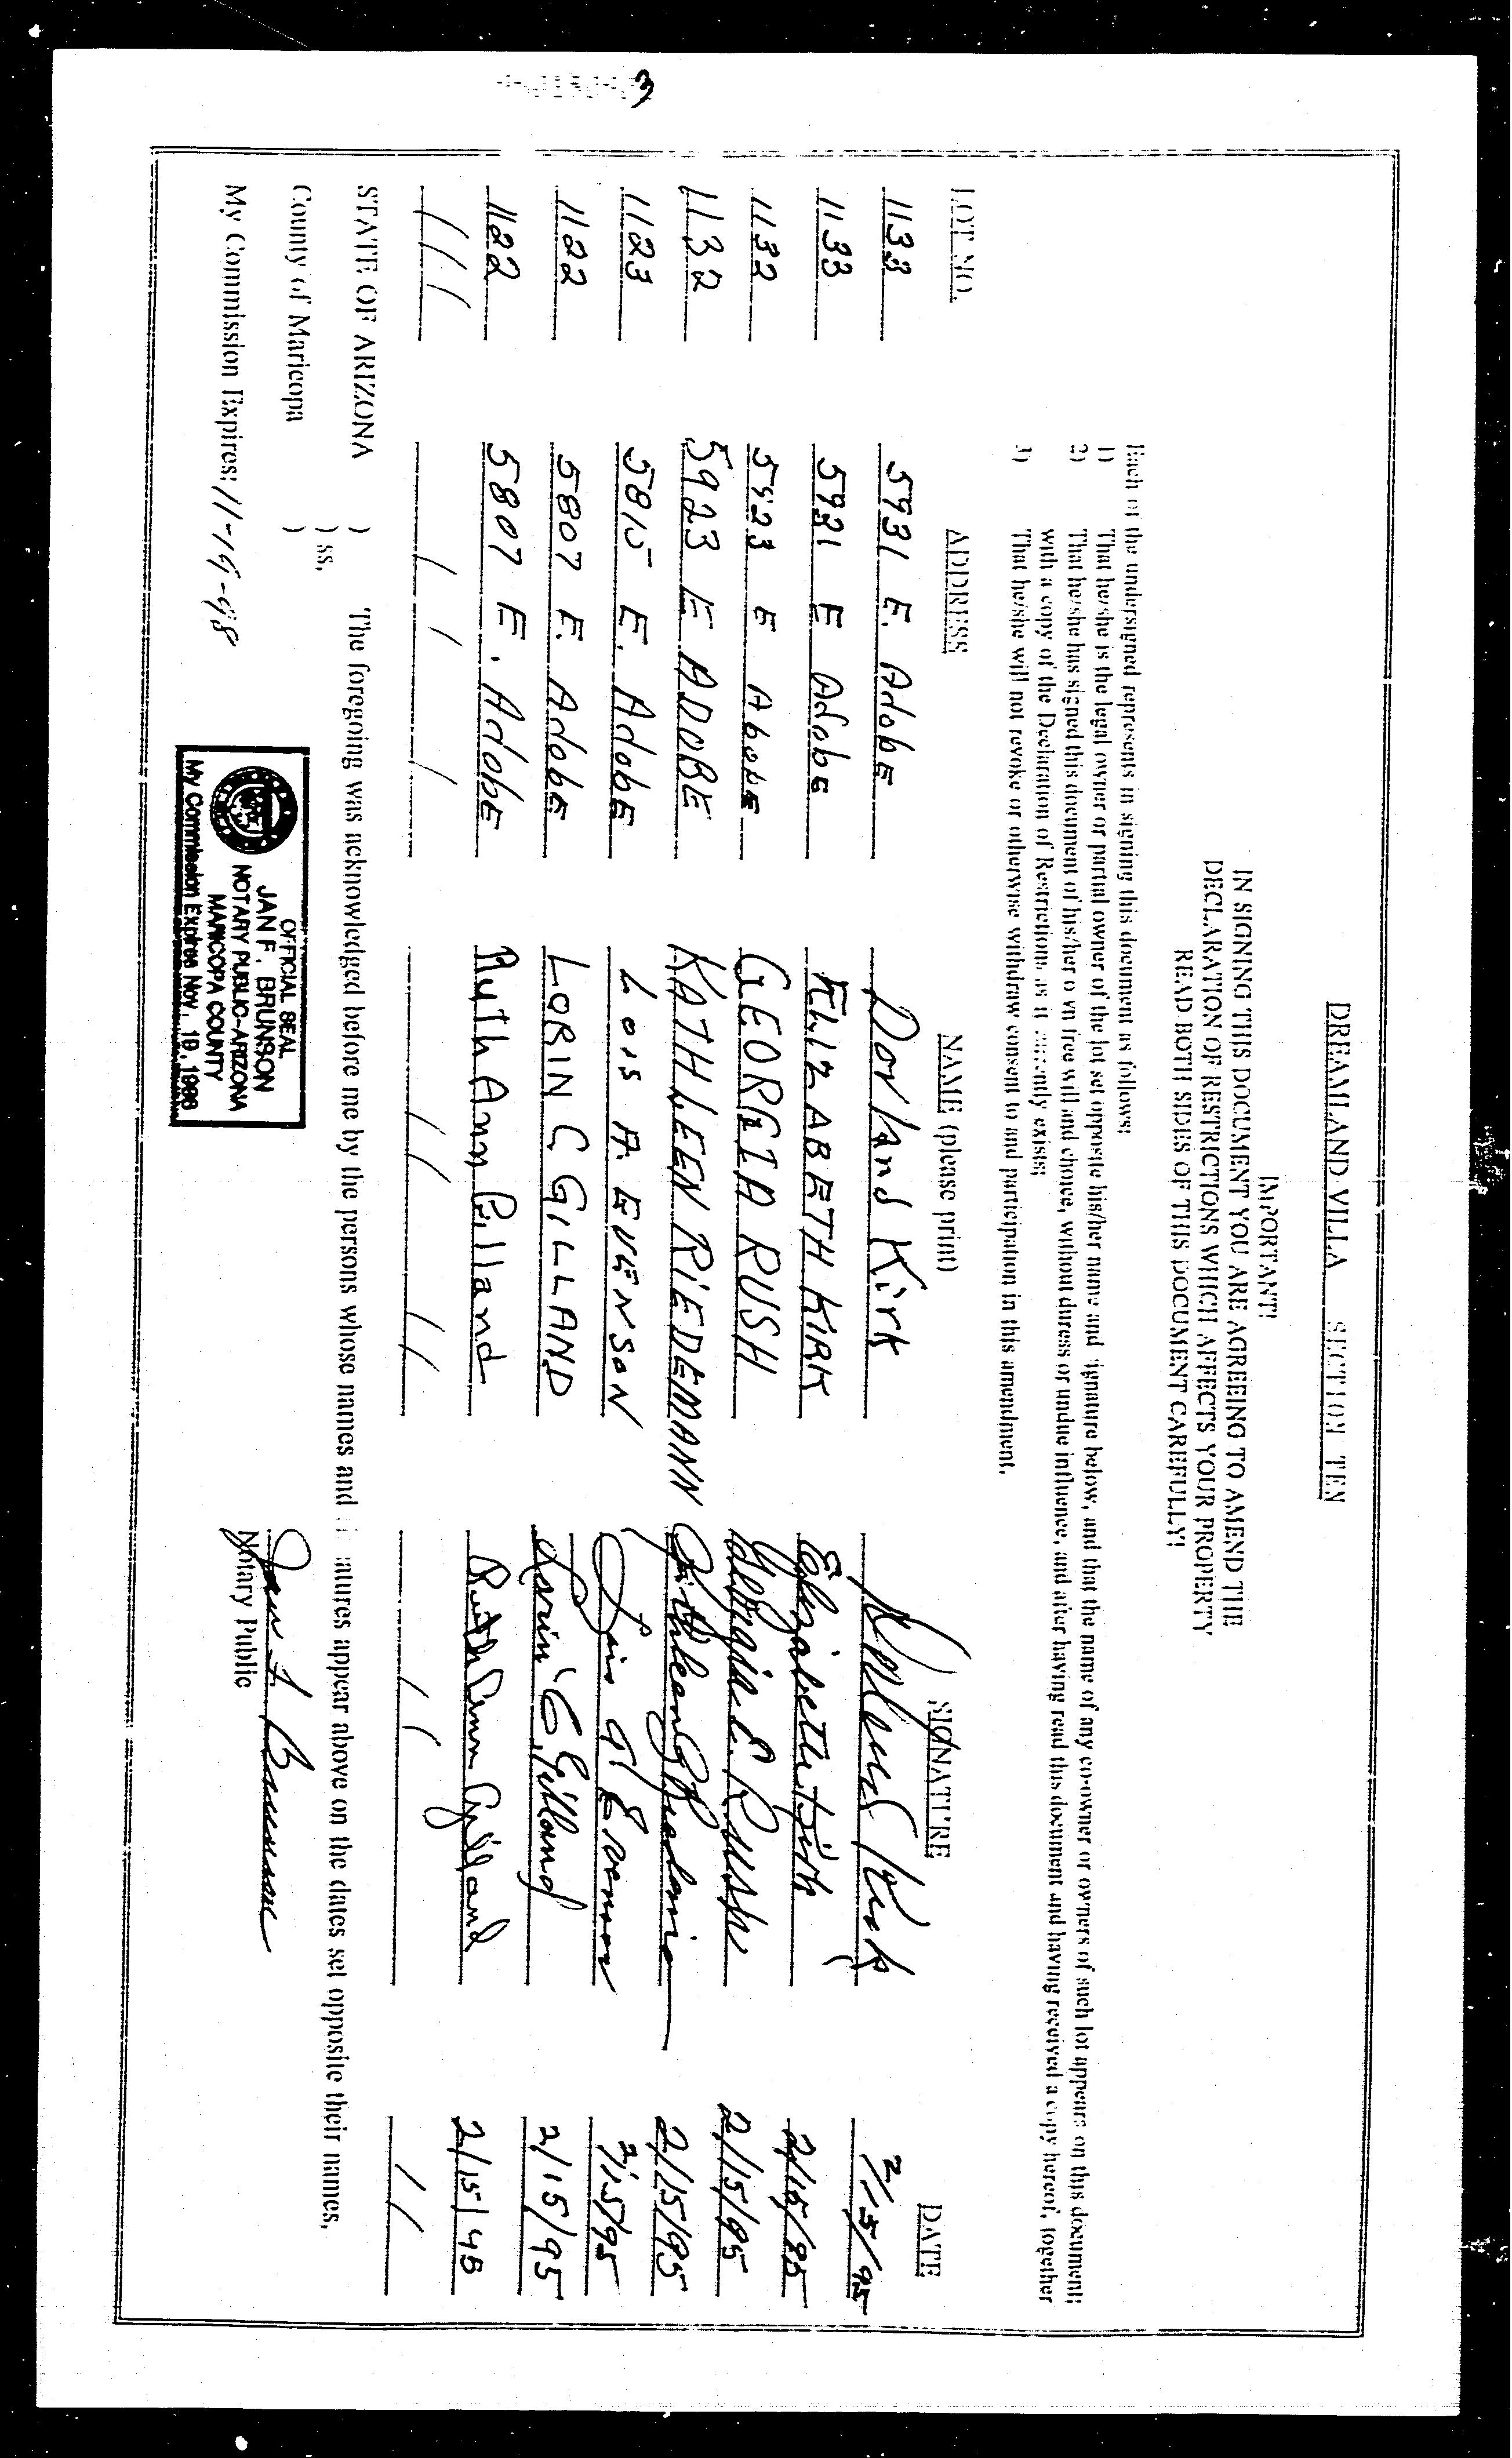 DREAMLAND VILLA SECTION TEN
IMPORTANT!
IN SIGNING THIS DOCUMENT YOU ARE AGREEING TO AMEND THE
DECLARATION OF RESTRICTIONS WHICH AFFECTS YOUR PROPERTY
READ BOTH SIDES OF THIS DOCUMENT CAREFULLY!
Each of the undersigned represents in signing this document as follows:
1) That he/she is the legal owner or partial owner of the lot set opposite his/her name and signature below, and that the name of any co-owner or owners of such lot appears on this document;
2) That he/she has signed this document of his/her own free will and choice, without duress or undue influence, and after having read this document and having received a copy hereof, together
with a copy of the Declaration of Restrictions as it currently exists;
3) That he/she will not revoke or otherwise withdraw consent to and participation in this amendment.
LOT NO. ADDRESS NAME (please print) SIGNATURE DATE
1133 5931 E. AdobE Dorland Kirk Dorland Kirk 2/15/95
1133 5931 E AdobE ELIZABETH KIRK Elizabeth Kirk 2/15/95
1132 5923 E AbobE GEORGIA RUSH Georgia E. Rush 2/15/95
1132 5923 E ADOBE KATHLEEN RiEDEMANN Kathleen Riedemann 2/15/95
1123 5815 E. AdobE Lois A. EVENSON Lois A Evenson 2/15/95
1122 5807 E. AdobE LORIN C GILLAND Lorin C. Gilland 2/15/95
1122 5807 E. AdobE Ruth Ann Gilland Ruth Ann Gilland 2/15/95
STATE OF ARIZONA )
) ss.
County of Maricopa )
The foregoing was acknowledged before me by the persons whose names and signatures appear above on the dates set opposite their names.
My Commission Expires: 11-19-98
Jan F Brunson
Notary Public
OFFICIAL SEAL
JAN F. BRUNSON
NOTARY PUBLIC-ARIZONA
MARICOPA COUNTY
My Commission Expires Nov. 19, 1998